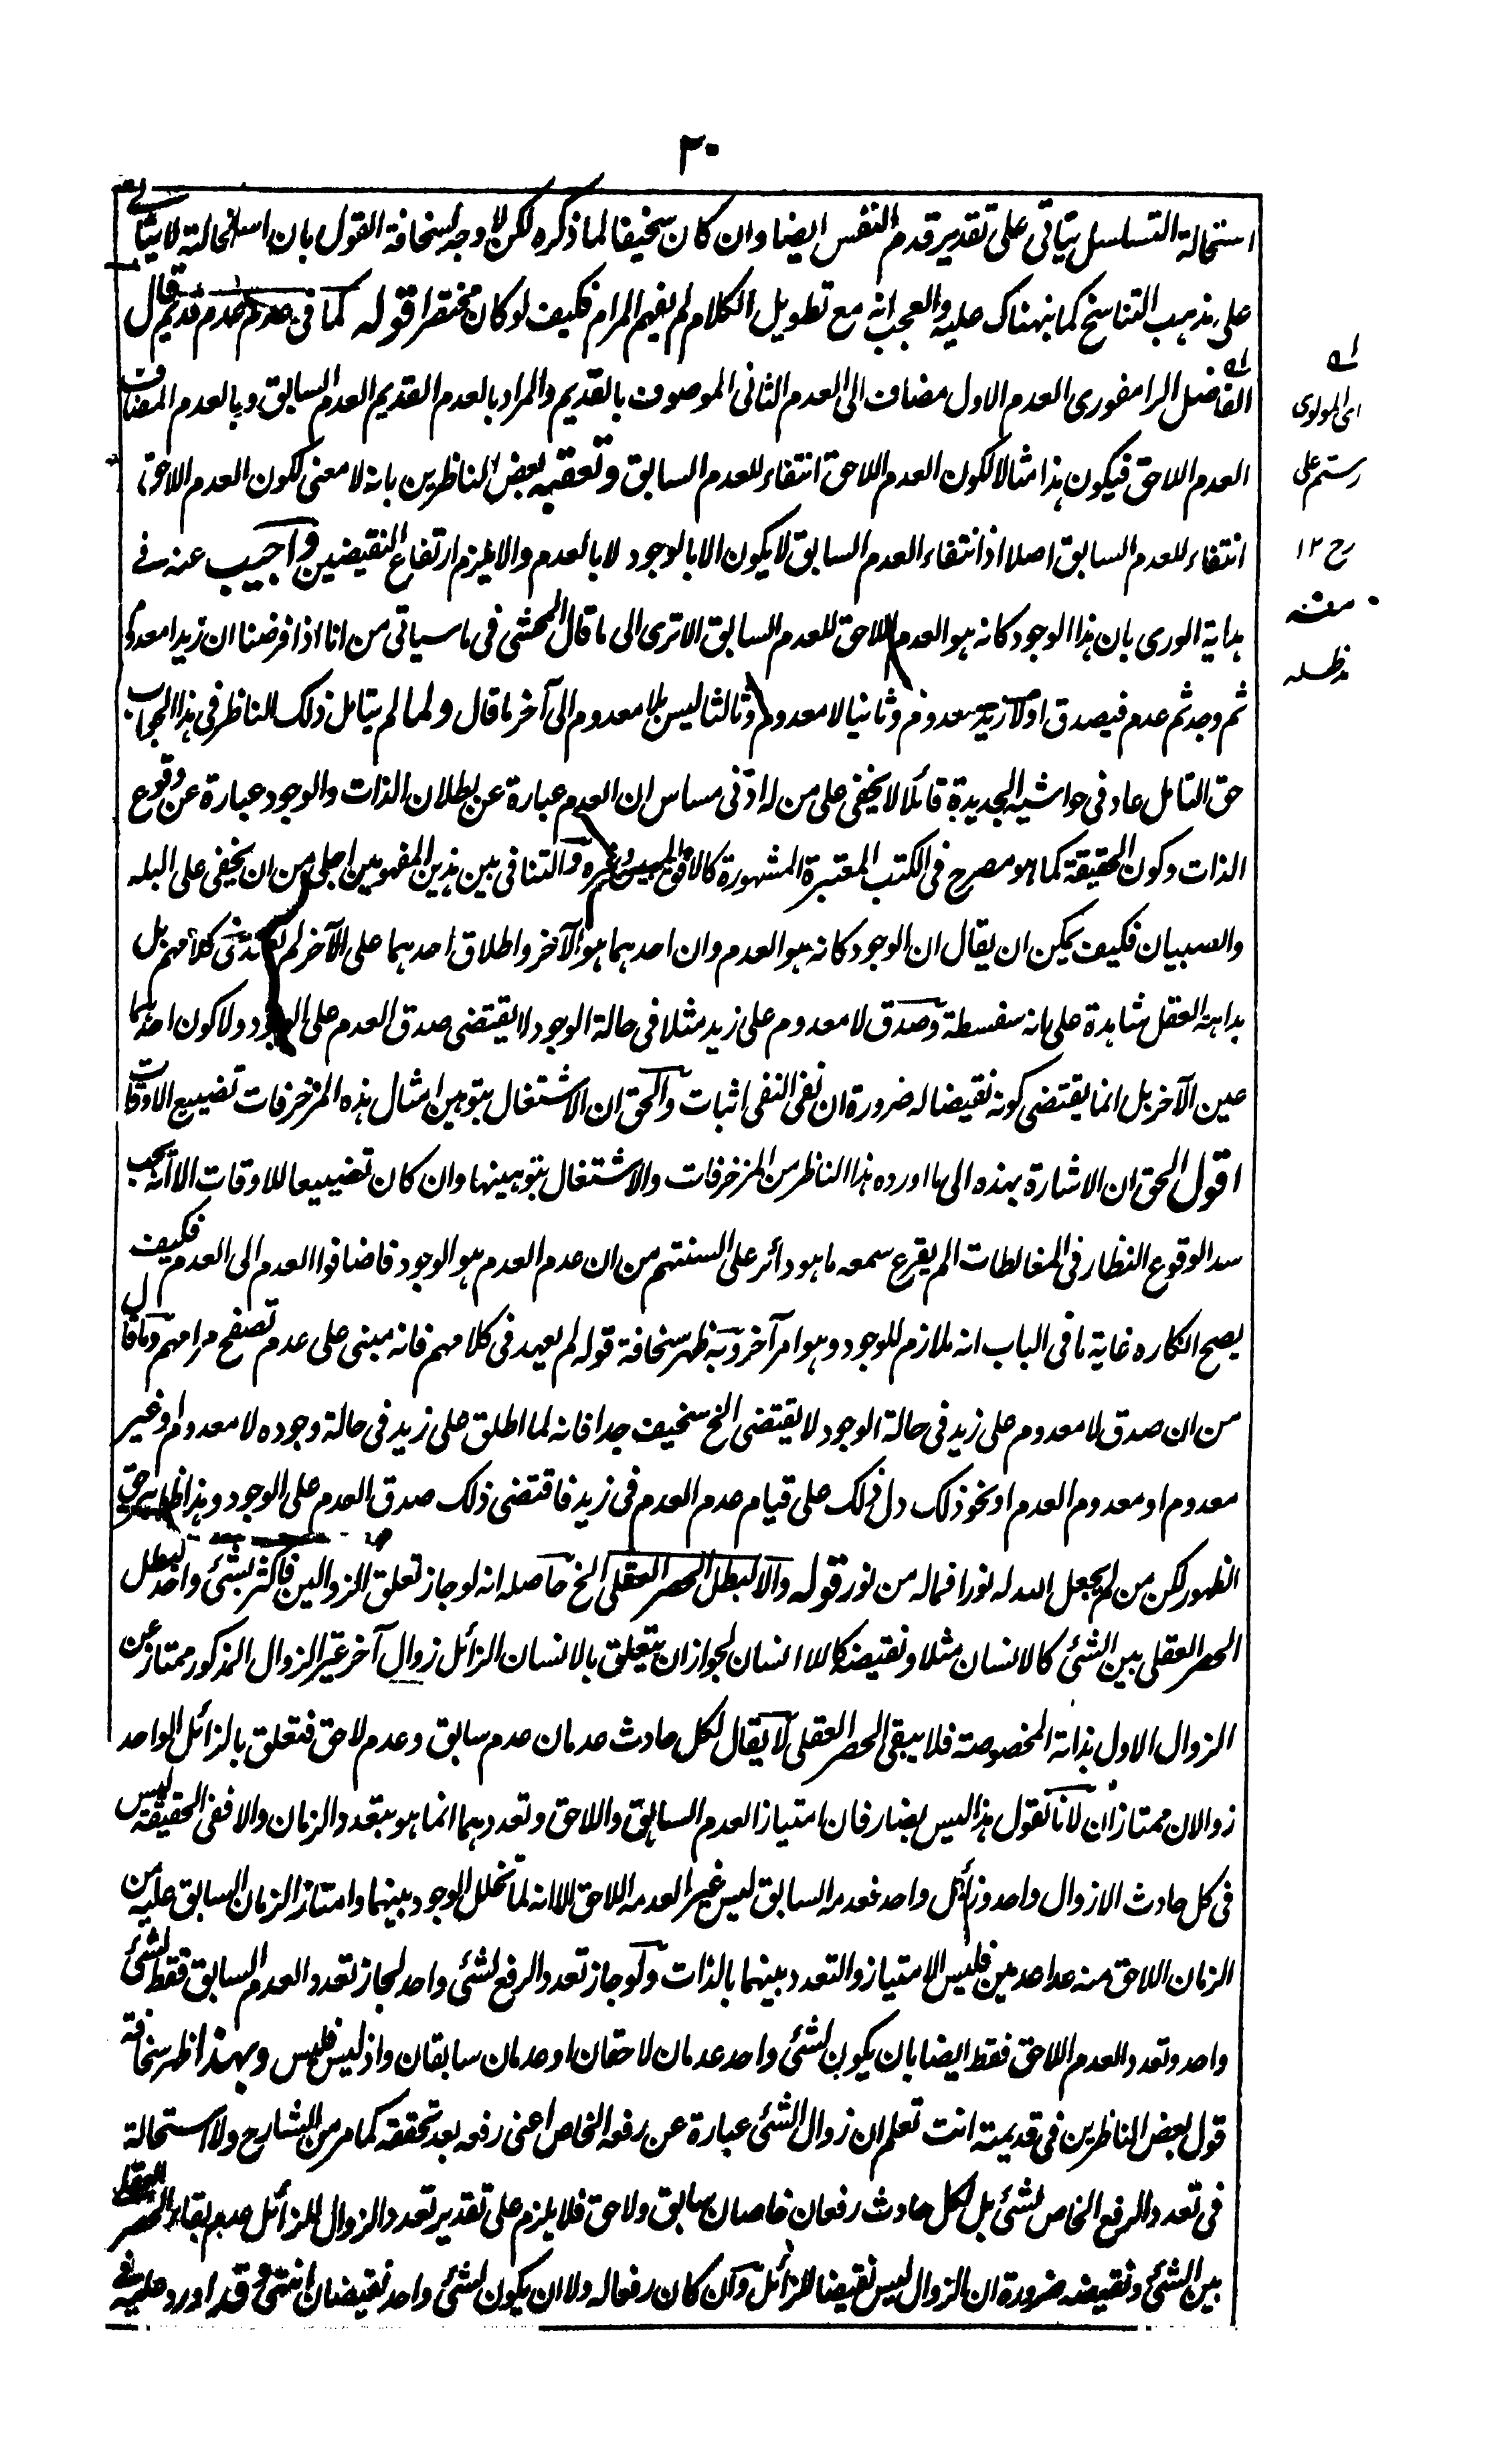 ٣٠
استحالة التسلسل يتاتى على تقدير قدم النفس ايضا وان كان سخيفا لما ذكره لكن لا وجه لسخافة القول بان استحالته لا يتاتى
على مذهب التناسخ كما نبهناك عليه والعجب انه مع تطويل الكلام لم يفهم المرام فكيف لو كان مختصرا قوله كما فى عدم عدم قديم قال
الفاضل الرامفورى العدم الاول مضاف الى العدم الثانى الموصوف بالقديم والمراد بالعدم القديم العدم السابق وبالعدم المضاف
العدم اللاحق فيكون هذا مثالا لكون العدم اللاحق انتفاء للعدم السابق وتعقبه بعض الناظرين بانه لا معنى لكون العدم اللاحق
انتفاء للعدم السابق اصلا اذ انتفاء العدم السابق لا يكون الا بالوجود لا بالعدم والا يلزم ارتفاع النقيضين واجيب عنه فى
هداية الورى بان هذا الوجود كانه هو العدم اللاحق للعدم السابق الا ترى الى ما قال المحشى فى ما سياتى من انا اذا فرضنا ان زيدا معدوم
ثم وجد ثم عدم فيصدق اولا زيد معدوم وثانيا لا معدوم وثالثا ليس بلا معدوم الى آخر ما قال ولما لم يتامل ذلك الناظر فى هذا الجواب
حق التامل عاد فى حواشيه الجديدة قائلا لا يخفى على من له ادنى مساس ان العدم عبارة عن بطلان الذات والوجود عبارة عن وقوع
الذات وكون الحقيقة كما هو مصرح فى الكتب المعتبرة المشهورة كالافق المبين وغيره والتنافى بين هذين المفهومين اجلى من ان يخفى على البله
والصبيان فكيف يمكن ان يقال ان الوجود كانه هو العدم وان احدهما هو الآخر واطلاق احدهما على الآخر لم يعهد فى كلامهم بل
بداهة العقل شاهدة على انه سفسطة وصدق لا معدوم على زيد مثلا فى حالة الوجود لا يقتضى صدق العدم على الوجود ولا كون احدهما
عين الآخر بل انما يقتضى كونه نقيضا له ضرورة ان نفى النفى اثبات والحق ان الاشتغال بتوهين امثال هذه المزخرفات تضييع الاوقات
اقول الحق ان الاشارة بهذه الى ما اورده هذا الناظر من المزخرفات والاشتغال بتوهينها وان كان تضييعا للاوقات الا انه يجب
سدا لوقوع النظار فى المغالطات الم يقرع سمعه ما هو دائر على السنتهم من ان عدم العدم هو الوجود فاضافوا العدم الى العدم فكيف
يصح انكاره غاية ما فى الباب انه ملازم للوجود وهو امر آخر وبه ظهر سخافة قوله لم يعهد فى كلامهم فانه مبنى على عدم تصفح مرامهم وما قال
من ان صدق لا معدوم على زيد فى حالة الوجود لا يقتضى الخ سخيف جدا فانه لما اطلق على زيد فى حالة وجوده لا معدوم او غير
معدوم او معدوم العدم او نحو ذلك دل ذلك على قيام عدم العدم فى زيد فاقتضى ذلك صدق العدم على الوجود وهذا ظاهر حق
الظهور لكن من لم يجعل الله له نورا فماله من نور قوله والا لبطل الحصر العقلى الخ حاصله انه لو جاز تعلق الزوالين فاكثر بشئ واحد لبطل
الحصر العقلى بين الشئ كالانسان مثلا ونقيضه كاللاانسان لجواز ان يتعلق بالانسان الزائل زوال آخر غير الزوال المذكور ممتاز عن
الزوال الاول بذاته المخصوصة فلا يبقى الحصر العقلى لا يقال لكل حادث عدمان عدم سابق وعدم لاحق فتعلق بالزائل الواحد
زوالان ممتازان لانا نقول هذا ليس بضار فان امتياز العدم السابق واللاحق وتعددهما انما هو بتعدد الزمان والا ففى الحقيقة ليس
فى كل حادث الا زوال واحد وزائل واحد فعدمه السابق ليس غير العدمه اللاحق الا انه لما تخلل الوجود بينهما وامتاز الزمان السابق عليه من
الزمان اللاحق منه عدا عدمين فليس الامتياز والتعدد بينهما بالذات ولو جاز تعدد الرفع لشئ واحد لجاز تعدد العدم السابق فقط لشئ
واحد وتعدد العدم اللاحق فقط ايضا بان يكون لشئ واحد عدمان لاحقان او عدمان سابقان واذ ليس فليس وبهذا ظهر سخافة
قول بعض الناظرين فى قديمته انت تعلم ان زوال الشئ عبارة عن رفعه الخاص اعنى رفعه بعد تحققه كما مر من الشارح ولا استحالة
فى تعدد الرفع الخاص لشئ بل لكل حادث رفعان خاصان سابق ولاحق فلا يلزم على تقدير تعدد الزوال للزائل عدم بقاء الحصر العقلى
بين الشئ ونقيضه ضرورة ان الزوال ليس نقيضا للزائل ولكن كان رفعا له ولا ان يكون لشئ واحد نقيضان انتهى وقد اورد عليه فى
اى المولوى
رستم على
رح ١٢
منه
مدظله